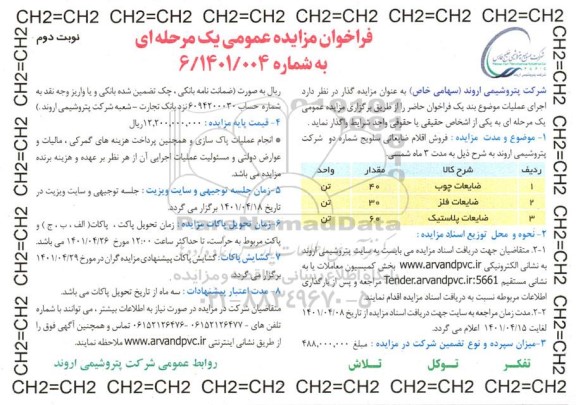 CH2=CH2 CH2=CH2 CH2=CH2 CH2=CH2 CH2=CH2 CH2=CH2 CH2=CH2
فراخوان مزایده عمومی یک مرحله ای
به شماره ۶/۱۴۰۱/۰۰۴
نوبت دوم
شرکت پتروشیمی اروند (سهامی خاص) به عنوان مزایده گذار در نظر دارد
اجرای عملیات موضوع بند یک فراخوان حاضر را از طریق برگزاری مزایده عمومی
یک مرحله ای به یکی از اشخاص حقیقی یا حقوقی واجد شرایط واگذار نماید.
۱- موضوع و مدت مزایده : فروش اقلام ضایعاتی مشروح شماره دو شرکت
پتروشیمی اروند به شرح ذیل به مدت ۳ ماه شمسی.
ردیف شرح کالا مقدار واحد
۱ ضایعات چوب ۴۰ تن
۲ ضایعات فلز ۳۰ تن
۳ ضایعات پلاستیک ۶۰ تن
۲- نحوه و محل توزیع اسناد مزایده :
۲-۱ متقاضیان جهت دریافت اسناد مزایده می بایست به سایت پتروشیمی اروند
به نشانی الکترونیکی www.arvandpvc.ir بخش کمیسیون معاملات یا به
نشانی مستقیم Tender.arvandpvc.ir:5661 مراجعه و پس از بارگذاری
اطلاعات مربوطه نسبت به دریافت اسناد مزایده اقدام نمایند.
۲-۲ مدت زمان مراجعه به سایت جهت دریافت اسناد مزایده از تاریخ ۱۴۰۱/۰۴/۰۸
لغایت ۱۴۰۱/۰۴/۱۵ اعلام می گردد.
۳-میزان سپرده و نوع تضمین شرکت در مزایده : مبلغ ۴۸۸,۰۰۰,۰۰۰
ریال به صورت (ضمانت نامه بانکی ، چک تضمین شده بانکی و یا واریز وجه نقد به
شماره حساب ۶۰۹۴۲۰۰۰۳۰ نزد بانک تجارت - شعبه شرکت پتروشیمی اروند .)
۴- قیمت پایه مزایده : ۱۲,۲۰۰,۰۰۰,۰۰۰ریال
* انجام عملیات پاک سازی و همچنین پرداخت هزینه های گمرکی ، مالیات و
عوارض دولتی و مسئولیت عملیات اجرایی آن از هر نظر بر عهده و هزینه برنده
مزایده می باشد.
۵-زمان جلسه توجیهی و سایت ویزیت : جلسه توجیهی و سایت ویزیت در
تاریخ ۱۴۰۱/۰۴/۱۸ برگزار می گردد.
۶- زمان تحویل پاکات مزایده: زمان تحویل پاکت ، پاکات( الف ، ب ، ج ) و
پاکت مربوط به حراست، تا حداکثر ساعت ۱۲:۰۰ مورخ ۱۴۰۱/۰۴/۲۶ می باشد.
۷- گشایش پاکات: گشایش پاکات پیشنهادی مزایده گران در مورخ ۱۴۰۱/۰۴/۲۹
برگزار می گردد.
۸- مدت اعتبار پیشنهادات : سه ماه از تاریخ تحویل پاکات می باشد.
متقاضیان شرکت در مزایده در صورت نیاز به اطلاعات بیشتر ، می توانند با شماره
تلفن های ۰۶۱۵۲۱۲۶۴۷۷ - ۰۶۱۵۲۱۲۶۴۷۶ تماس و همچنین آگهی فوق را
از طریق نشانی اینترنتی www.arvandpvc.ir ملاحظه نمایند.
تفکر توکل تلاش
روابط عمومی شرکت پتروشیمی اروند
CH2=CH2 CH2=CH2 CH2=CH2 CH2=CH2 CH2=CH2 CH2=CH2 CH2=CH2